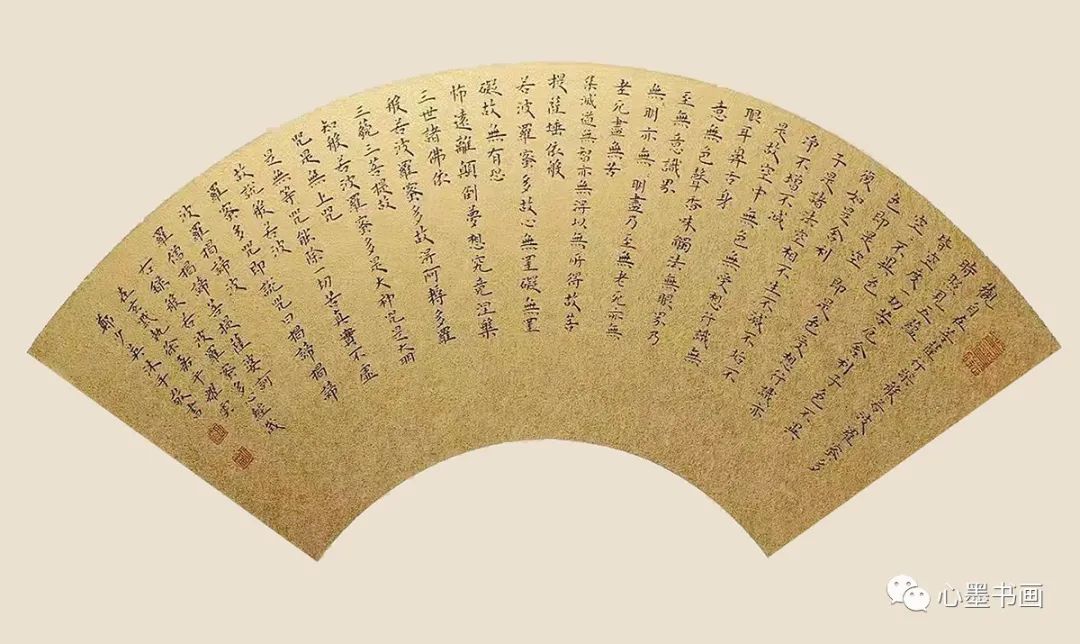 觀自在菩薩行深般若波羅蜜多
時照見五蘊
皆空度一切苦厄舍利子色不異
空不異色
色即是空 即是色受想行識亦
復如是舍利
子是諸法空相不生不滅不垢不
淨不增不減
是故空中無色無受想行識無
眼耳鼻舌身
意無色聲香味觸法無眼界乃
至無意識界
無明亦無明盡乃至無老死亦無
老死盡無苦
集滅道無智亦無得以無所得故菩
提薩埵依般
若波羅蜜多故心無罣礙無罣
礙故無有恐
怖遠離顛倒夢想究竟涅槃
三世諸佛依
般若波羅蜜多故得阿耨多羅
三藐三菩提故
知般若波羅蜜多是大神咒是大明
咒是無上咒
是無等咒能除一切苦真實不虛
故說般若波
羅蜜多咒即說咒曰揭諦揭諦
波羅揭諦
波羅僧揭諦菩提薩婆訶
右錄般若波羅蜜多心經歲
在玄黓執徐嘉平
沐手敬書
心墨书画